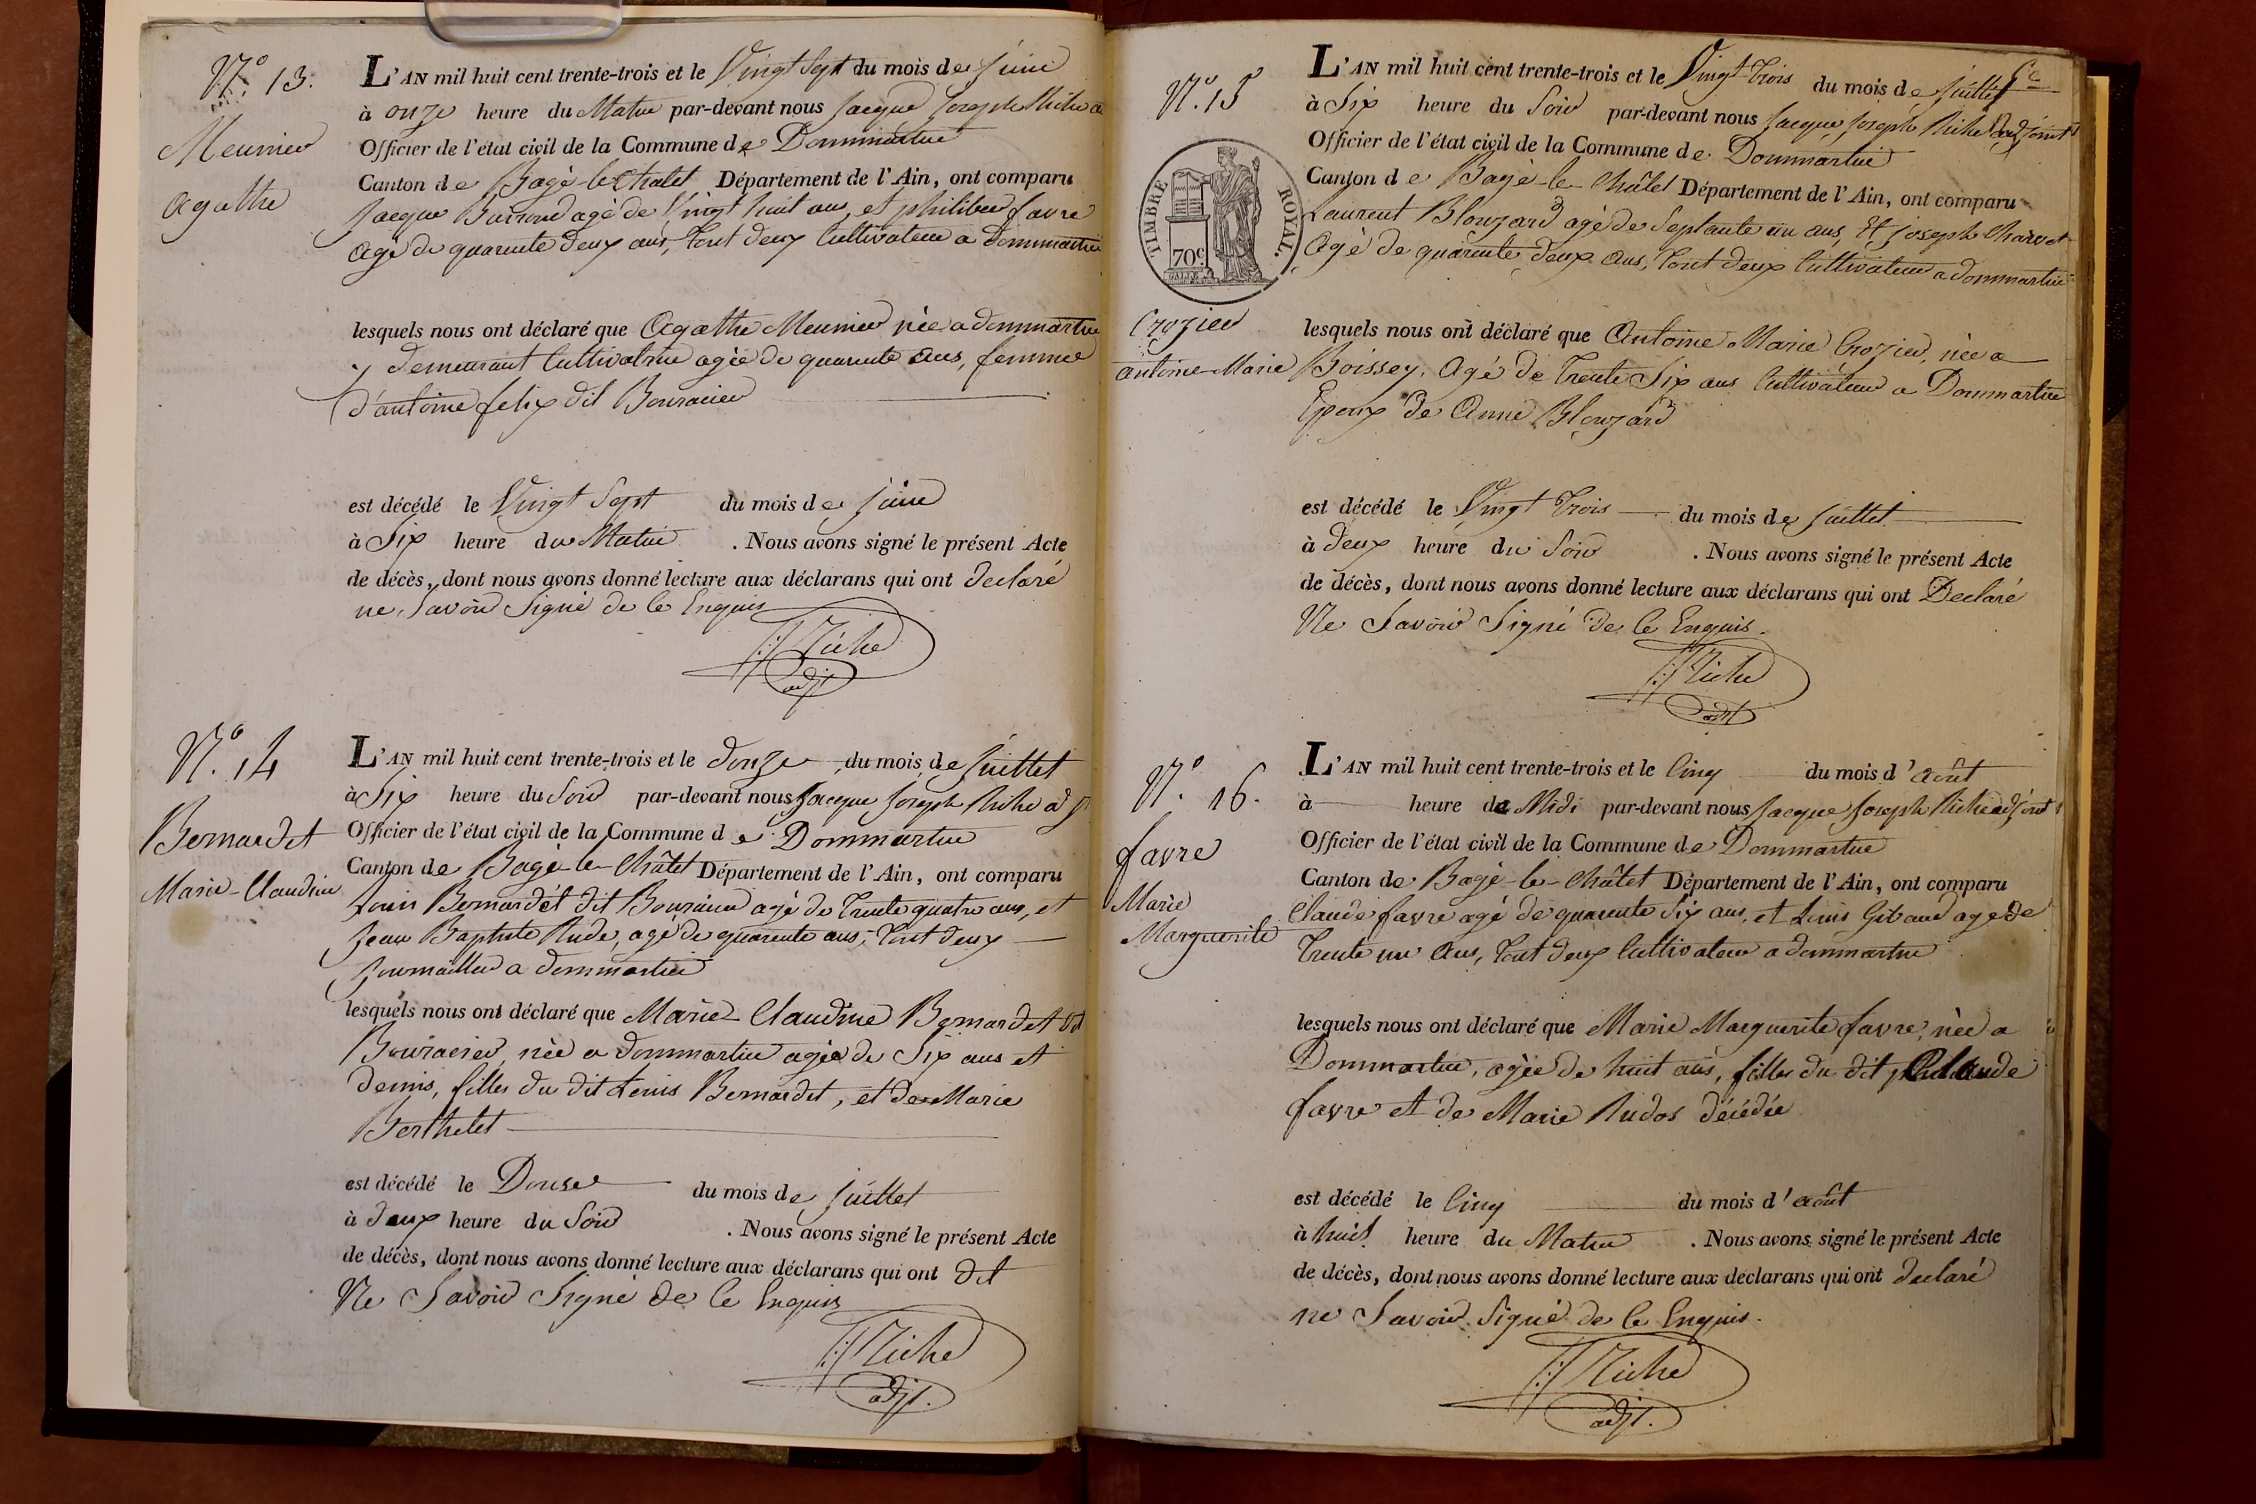 N.° 13.
Meunier
Agathe
L'AN mil huit cent trente-trois et le Vingt Sept du mois de Juin
à onze heure du Matin par-devant nous Jacque Joseph Riche a
Officier de l'état civil de la Commune de Dommartin
Canton de Bagé-le-Chatel Département de l'Ain, ont comparu
Jacque agé de Vingt huit ans, et philiber favre
agé de quarente deux ans, tout deux Cultivateur a dommartin
lesquels nous ont déclaré que Agathe Meunier née a dommartin
y demeurant Cultivatrice agée de quarente ans, femme
d'antoine felix dit Bouracier
est décédé le Vingt Sept du mois de Juin
à Six heure du Matin . Nous avons signé le présent Acte
de décès, dont nous avons donné lecture aux déclarans qui ont declaré
ne Savoir Signé de Ce Enquis
J:J Riche
adjt
N.° 14
Bernardet
Marie-Claudine
L'AN mil huit cent trente-trois et le donze du mois de Juillet
à Six heure du Soir par-devant nous Jacque Joseph Riche adj
Officier de l'état civil de la Commune de Dommartin
Canton de Bagé-le-Châtel Département de l'Ain, ont comparu
Louis Bernardet dit Bouracier agé de Trente quatre ans, et
Jean Baptiste Rude, agé de quarente ans, tout deux
Journallier a dommartin
lesquels nous ont déclaré que Marie Claudine Bernardet dit
Bouracier, née a dommartin agée de Six ans et
demis, fille du dit Louis Bernardet, et de Marie
Berthelet
est décédé le Douse du mois de Juillet
à deux heure du Soir . Nous avons signé le présent Acte
de décès, dont nous avons donné lecture aux déclarans qui ont dit
Ne Savoir Signé de Ce Enquis
J:J Riche
adjt.
N.° 15
TIMBRE ROYAL.
70c
Crozier
antoine-Marie
L'AN mil huit cent trente-trois et le Vingt-Trois du mois de Juillet
à Six heure du Soir par-devant nous Jacque Joseph Riche adjoint
Officier de l'état civil de la Commune de Dommartin
Canton de Bagé-le-Châtel Département de l'Ain, ont comparu
Laurent Blouzard agé de Septante un ans, Et Joseph Charvet
Agé de quarente deux ans, tout deux Cultivateur a dommartin
lesquels nous ont déclaré que Antoine Marie Crozier, née a
Boissey, Agé de Trente Six ans Cultivateur a Dommartin
Epoux de Anne Blouzard
est décédé le Vingt Trois du mois de Juillet
à deux heure du Soir . Nous avons signé le présent Acte
de décès, dont nous avons donné lecture aux déclarans qui ont Declaré
Ne Savoir Signé de Ce Enquis.
J:J Riche
adjt
N.° 16.
favre
Marie
Marguerite
L'AN mil huit cent trente-trois et le Cinq du mois d'août
à heure de Midi par-devant nous Jacque Joseph Riche adjoint
Officier de l'état civil de la Commune de Dommartin
Canton de Bagé-le-Châtel Département de l'Ain, ont comparu
Claude favre agé de quarente Six ans, et Louis Giraud agé de
Trente un ans, tout deux Cultivateur a dommartin
lesquels nous ont déclaré que Marie Marguerite favre, née a
Dommartin, agée de huit ans, fille du dit Claude
favre et de Marie Rudos décédée
est décédé le Cinq du mois d'août
à huit heure du Matin . Nous avons signé le présent Acte
de décès, dont nous avons donné lecture aux déclarans qui ont declaré
ne Savoir Signé de Ce Enquis.
J:J Riche
adjt.